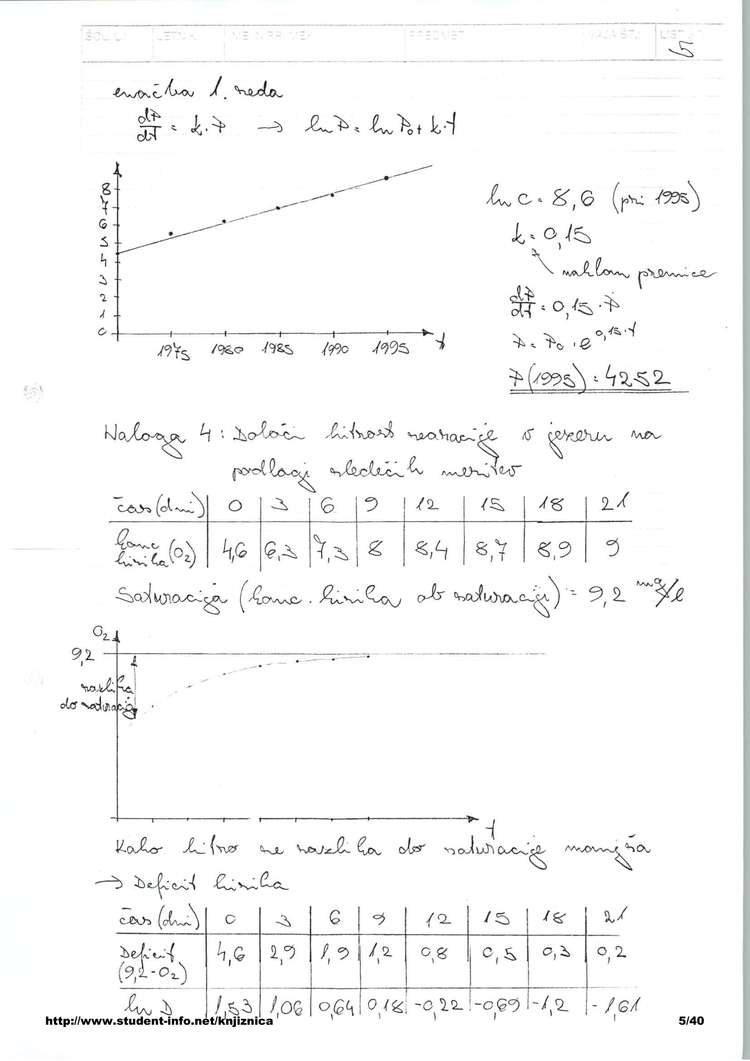 5
enačba 1. reda
dP/dt = k·P → ln P = ln P₀ + k·t
8
7
6
5
4
3
2
1
0
1975 1980 1985 1990 1995 t
ln c = 8,6 (pri 1995)
k = 0,15
naklon premice
dP/dt = 0,15·P
P = P₀ · e^0,15·t
P(1995) = 4252
Naloga 4: Določi hitrost reoracije v jezeru na
podlagi sledečih meritev
čas (dni) 0 3 6 9 12 15 18 21
konc kisika (O₂) 4,6 6,3 7,3 8 8,4 8,7 8,9 9
Saturacija (konc. kisika ob saturaciji) = 9,2 mg/l
O₂
9,2
razlika
do saturacije
t
Kako hitro se razlika do saturacije manjša
→ Deficit kisika
čas (dni) 0 3 6 9 12 15 18 21
Deficit (9,2-O₂) 4,6 2,9 1,9 1,2 0,8 0,5 0,3 0,2
ln D 1,53 1,06 0,64 0,18 -0,22 -0,69 -1,2 -1,61
http://www.student-info.net/knjiznica 5/40